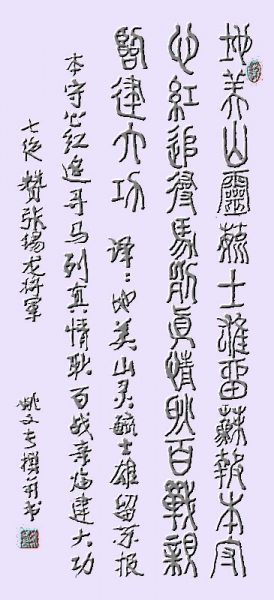 地美山靈毓士雄留蘇報本守
心紅追尋馬列真情耿百戰親
建大功 译：地美山灵毓士雄留苏报
本守心红追寻马列真情耿百战亲建大功
七绝 赞张锡龙将军
姚文撰并书